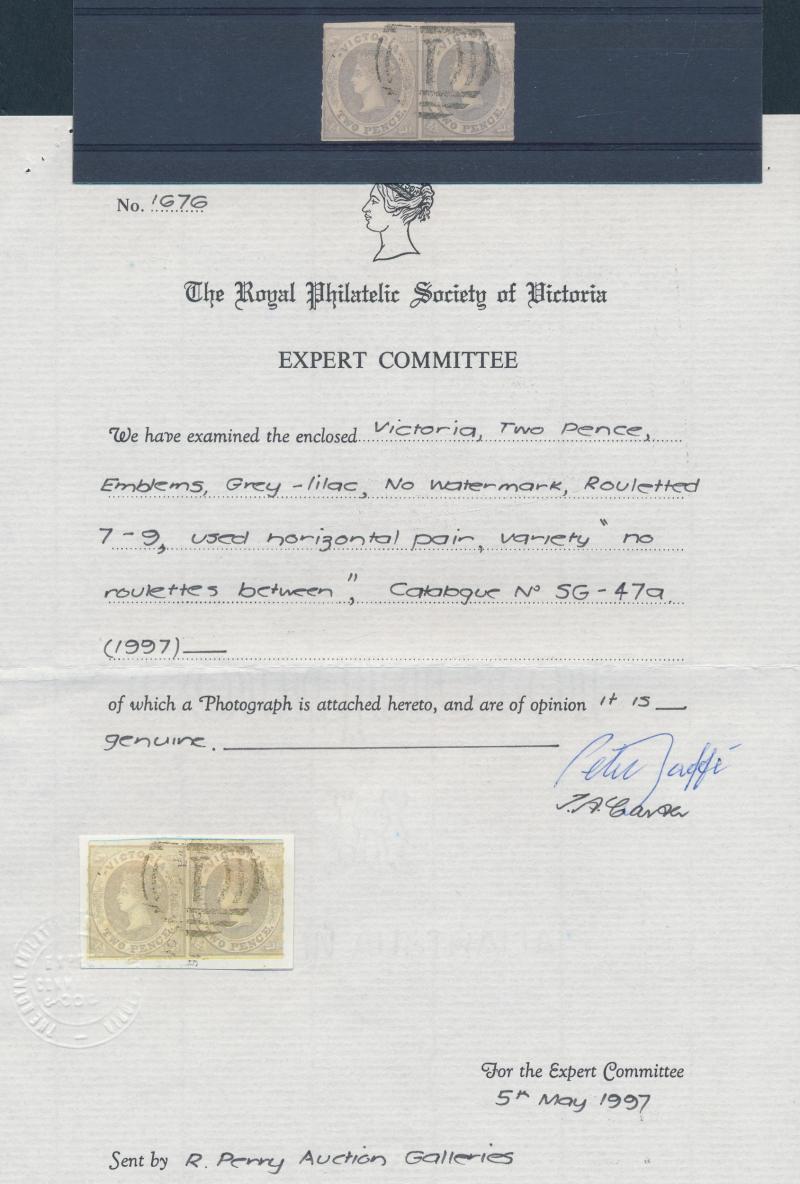 VICTORIA VICTORIA
TWO PENCE TWO PENCE
No. 1676
The Royal Philatelic Society of Victoria
EXPERT COMMITTEE
We have examined the enclosed Victoria, Two Pence,
Emblems, Grey-lilac, No Watermark, Rouletted
7-9, used horizontal pair, variety "no
roulettes between", Catalogue No SG-47a
(1997)
of which a Photograph is attached hereto, and are of opinion it is
genuine.
Peter Jaffé
VICTORIA VICTORIA
TWO PENCE TWO PENCE
For the Expert Committee
5th May 1997
Sent by R. Perry Auction Galleries